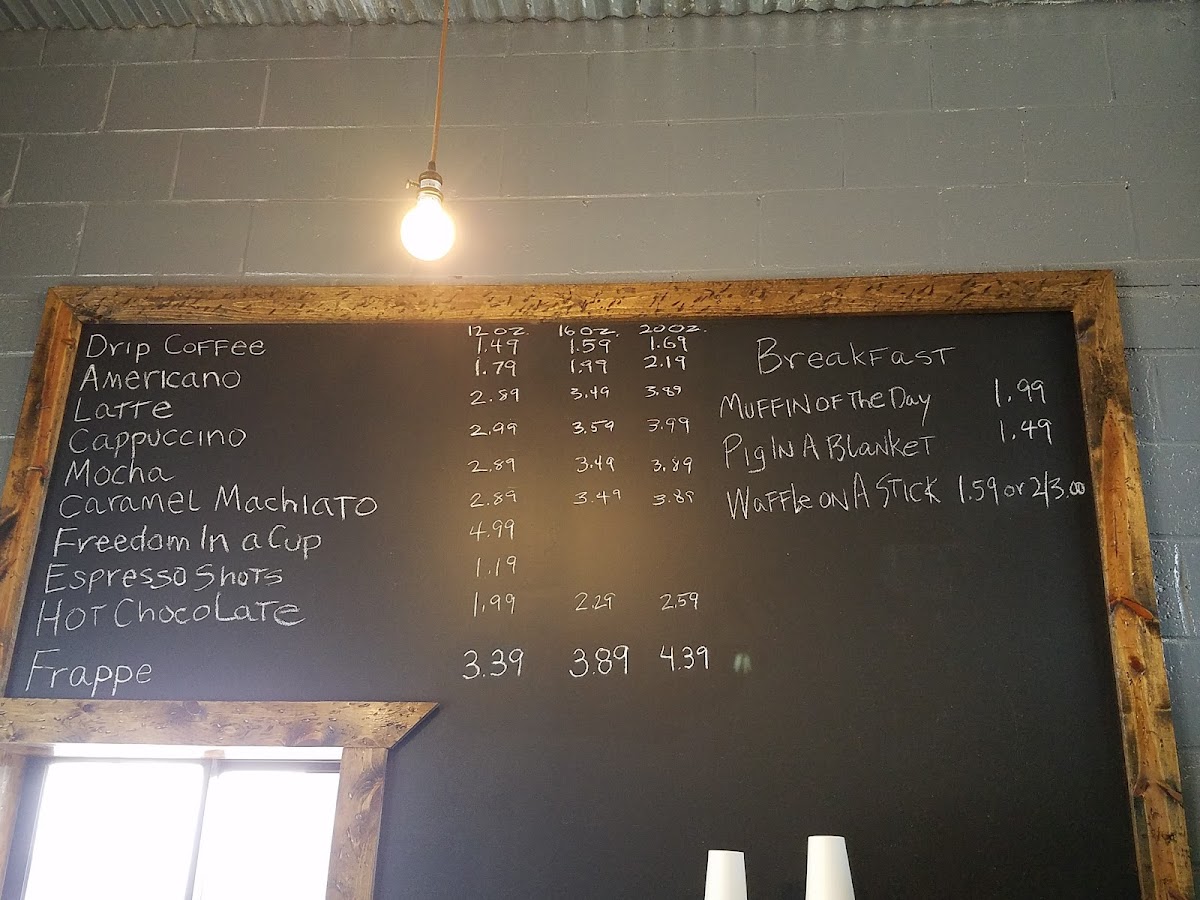 12 oz. 16 oz. 20 oz.
Drip Coffee 1.49 1.59 1.69
Americano 1.79 1.99 2.19
Latte 2.89 3.49 3.89
Cappuccino 2.99 3.59 3.99
Mocha 2.89 3.49 3.89
Caramel Machiato 2.89 3.49 3.89
Freedom In a Cup 4.99
Espresso Shots 1.19
Hot Chocolate 1.99 2.29 2.59
Frappe 3.39 3.89 4.39
Breakfast
Muffin of The Day 1.99
Pig In A Blanket 1.49
Waffle on A Stick 1.59 or 2/3.00